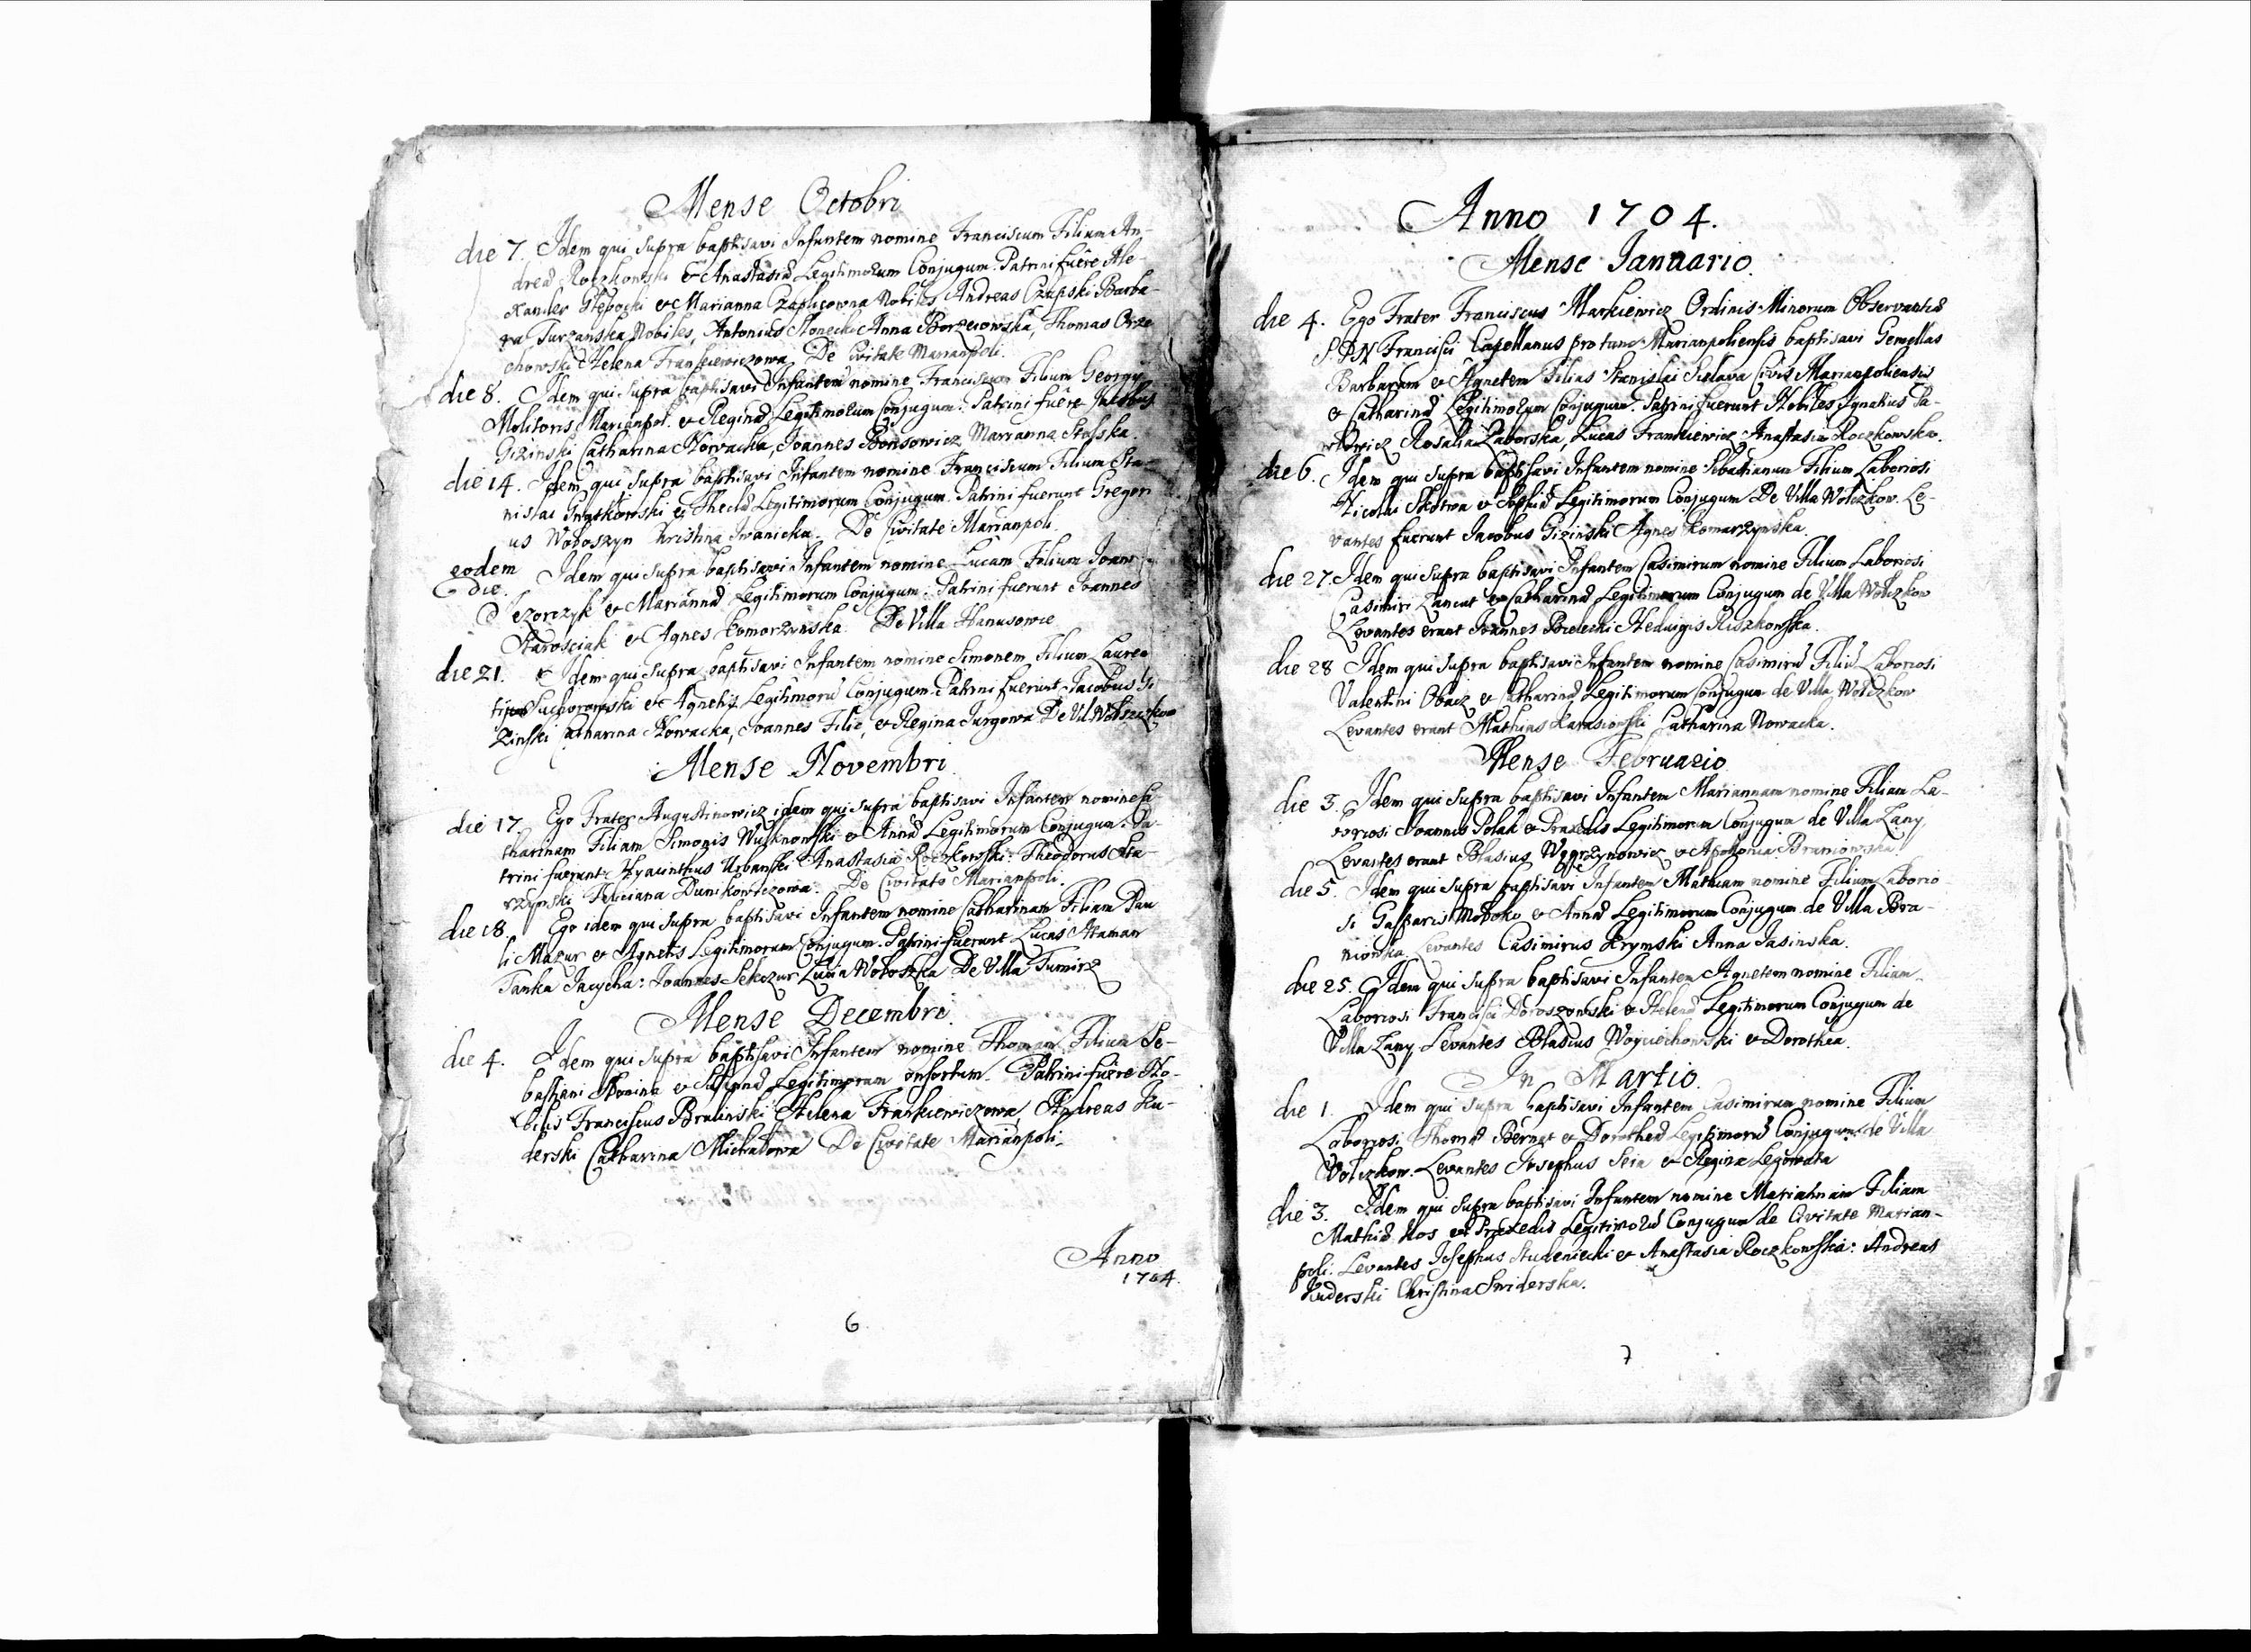 Mense Octobri
die 7. Idem qui supra baptisavi Infantem nomine Franciscum Filium An-
dreæ Roczkowski & Anastasiæ Legitimorum Conjugum. Patrini fuere Ale-
xander Stępocki & Marianna Czaplicowna Nobiles, Andreas Czapski Barba-
ra Turzanska Nobiles, Antonius Słonecki Anna Borzecowska, Thomas Orze
chowski Helena Frankiewiczowa, De Civitate Marianpoli.
die 8. Idem qui supra baptisavi Infantem nomine Franciscum Filium Georgy
Molitoris Marianpol. & Reginæ Legitimorum Conjugum. Patrini fuere Jacobus
Gizinski Catharina Nowacka, Joannes Bonsowicz Marianna Stasska.
die 14. Idem qui supra baptisavi Infantem nomine Franciscum Filium Sta-
nislai & Theclæ Legitimorum Conjugum. Patrini fuerunt Gregori
us Wołoszyn Christina Iwanicka. De Civitate Marianpoli.
eodem Idem qui supra baptisavi Infantem nomine Lucam Filium Joan
die. Jezorczyk & Mariannæ Legitimorum Conjugum. Patrini fuerunt Joannes
Starosciak & Agnes Komorzynska. De Villa Hanusowce
die 21. Idem qui supra baptisavi Infantem nomine Simonem Filium Lauren
tij Suchorowski & Agnetis Legitimorũ Conjugum. Patrini fuerunt Jacobus Gi
zinski Catharina Nowacka, Joannes Filic, & Regina Jurgowa De Vil. Wołczkow
Mense Novembri
die 17 Ego Frater Augustinowicz idem qui supra baptisavi Infantem nomine Ca
tharinam Filiam Simonis & Annæ Legitimorum Conjugum. Pa-
trini fuerunt Hyacinthus Urbanski Anastasia Roczkowski: Theodorus
Feliciana Dunikowiczowa. De Civitate Marianpoli.
die 18. Ego idem qui supra baptisavi Infantem nomine Catharinam Filiam Pau
li Mazur & Agnetis Legitimorum Conjugum. Patrini fuerunt Lucas Ataman
Tanka Jacycha: Joannes Sekczur Lucia Wołoszka De Villa Tumirz
Mense Decembri.
die 4. Idem qui supra baptisavi Infantem nomine Thomam Filium Se-
bastiani Słonina & Susannæ Legitimorum Consortum. Patrini fuere No-
bilis Franciscus Bralinski Helena Frankiewiczowa, Andreas Ku-
derski Catharina Michałowa De Civitate Marianpoli.
Anno
1704.
6
Anno 1704.
Mense Januario.
die 4. Ego Frater Franciscus Markiewicz Ordinis Minorum Observantiæ
S. P. N. Francisci Capellanus pro tunc Marianpoliensis baptisavi Gemellas
Barbaram & Agnetem Filias Stanislai Sielava Civis Marianpoliensis
& Catharinæ Legitimorum Conjugum. Patrini fuerunt Nobiles Ignatius
Rosalia Zaborska, Lucas Frankiewicz Anastasia Roczkowska.
die 6. Idem qui supra baptisavi Infantem nomine Sebastianum Filium Laboriosi
Nicolai & Sophiæ Legitimorum Conjugum De Villa Wołczkow. Le-
vantes fuerunt Jacobus Gizinski Agnes Komarzynska.
die 27. Idem qui supra baptisavi Infantem Casimirum nomine Filium Laboriosi
Casimiri Łancut & Catharinæ Legitimorum Conjugum de Villa Wołczkow
Levantes erant Joannes Bielecki Heduigis Ruszkowska.
die 28 Idem qui supra baptisavi Infantem nomine Casimirũ Filiũ Laboriosi
Valentini Obacz & Catharinæ Legitimorum Conjugum de Villa Wołczkow
Levantes erant Mathias Karasiowski Catharina Nowacka.
Mense Februario
die 3. Idem qui supra baptisavi Infantem Mariannam nomine Filiam La-
boriosi Joannis Polak & Praxedis Legitimorum Conjugum de Villa Łany,
Levantes erant Blasius Węgrzynowicz & Apollonia Braniowska.
die 5. Idem qui supra baptisavi Infantem Mathiam nomine Filium Laborio
si Gasparis Moboko & Annæ Legitimorum Conjugum de Villa Bra-
niowka Levantes Casimirus Krymski Anna Jasinska.
die 25. Idem qui supra baptisavi Infantem Agnetem nomine Filiam
Laboriosi Francisci Doroszowski & Helenæ Legitimorum Conjugum de
Villa Łany Levantes Blasius Woyciechowski & Dorothea.
In Martio.
die 1. Idem qui supra baptisavi Infantem Casimirum nomine Filium
Laboriosi Thomæ Bernat & Dorotheæ Legitimorũ Conjugum de Villa
Wołczkow. Levantes Josephus Seia & Regina Legowata
die 3. Idem qui supra baptisavi Infantem nomine Mariannam Filiam
Mathiæ Kos & Praxedis Legitimorũ Conjugum de Civitate Marian-
poli. Levantes Josephus Studeniecki & Anastasia Roczkowska: Andreas
Kuderski Christina Swiderska.
7